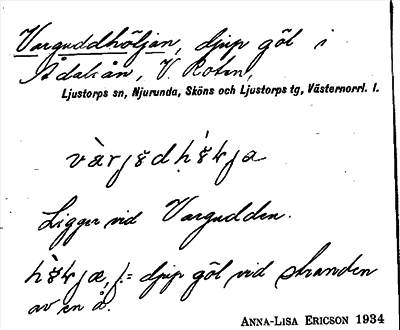 Varguddhöljan, djup göl i
Ådalsån, V. Roten,
Ljustorps sn, Njurunda, Sköns och Ljustorps tg, Västernorrl. l.
Ligger vid Vargudden.
djup göl vid stranden
av en å.
ANNA-LISA ERICSON 1934